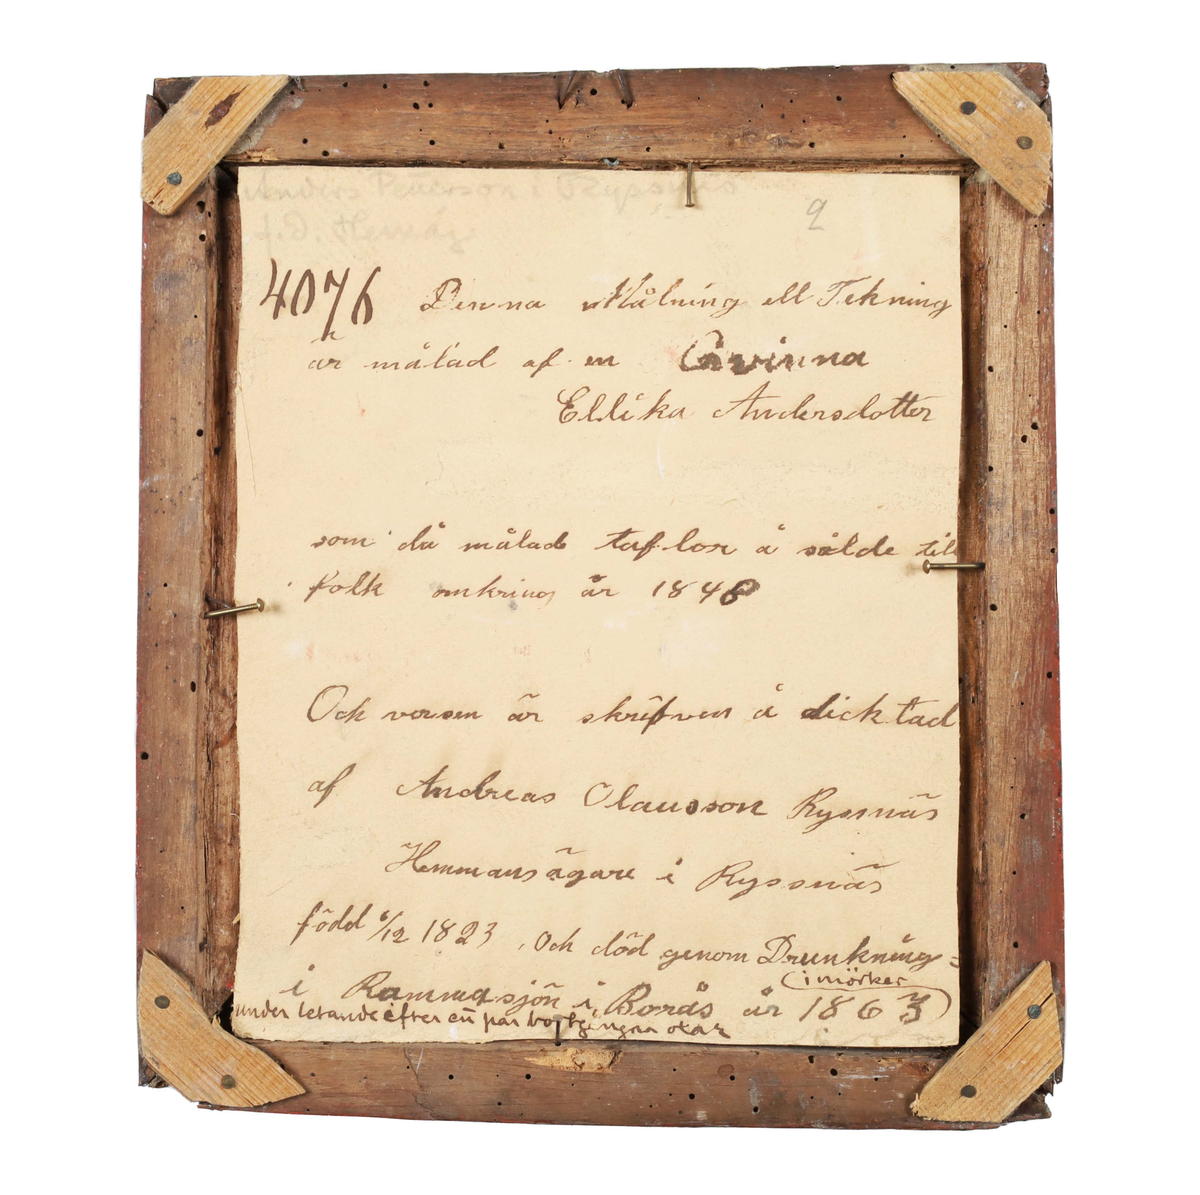 Anders Petterson i
9
4076 Denna Målning ell Tekning
är målad af en Qvinna
Ellika Andersdotter
som då målade taflor å sålde till
folk omkring år 1846
Och versen är skrifven å dicktad
af Andreas Olausson Ryssnäs
Hemmansägare i Ryssnäs
född 6/12 1823, Och död genom Drunkning=
(i mörker
i Rammasjön i Borås år 1863)
under letande efter en par bortgångna oxar